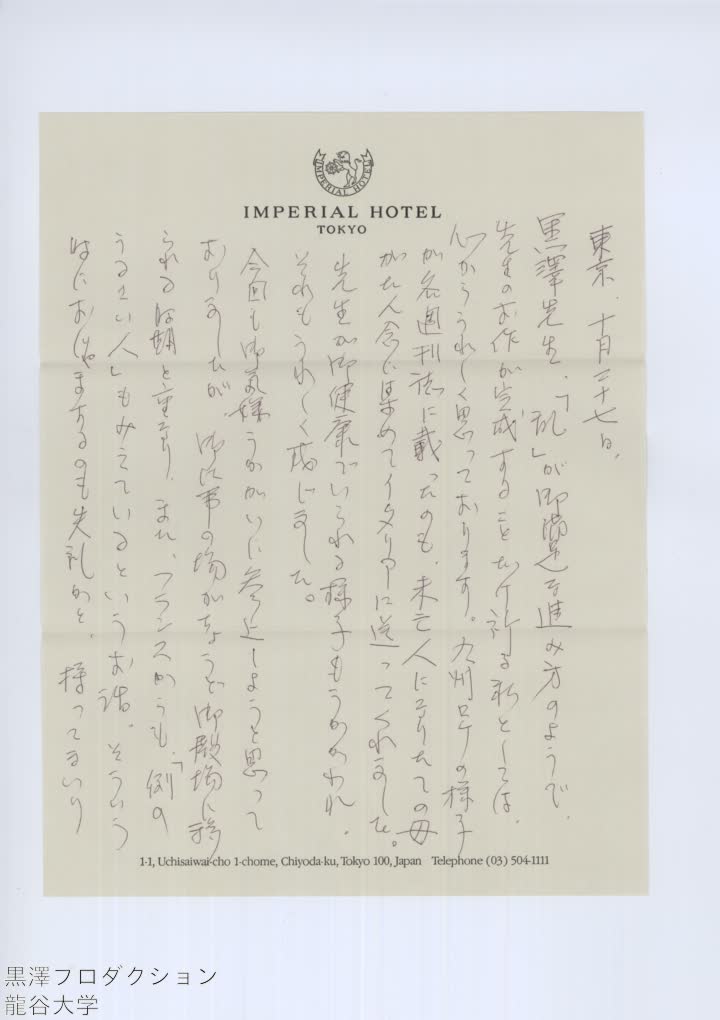 IMPERIAL HOTEL
IMPERIAL HOTEL
TOKYO
東京、十月二十七日、
黒澤先生、「乱」が御満足な進み方のようで、
先生のお作が完成することだけ祈る私としては、
心からうれしく思っております。九州ロケの様子
が各週刊誌に載ったのも、未亡人になりたての母
がたん念に集めてイタリアに送ってくれました。
先生が御健康でいられる様子もうかがわれ、
それもうれしく感じました。
今回も御気嫌うかがいに参上しようと思って
おりましたが、御仕事の場がちょうど御殿場に移
られる時期と重なり、また、フランスからも、「例の
うるさい人」もみえているというお話。そういう
時におじゃまするのも失礼かと、様ってまいり
1-1, Uchisaiwai-cho 1-chome, Chiyoda-ku, Tokyo 100, Japan Telephone (03) 504-1111
黒澤プロダクション
龍谷大学